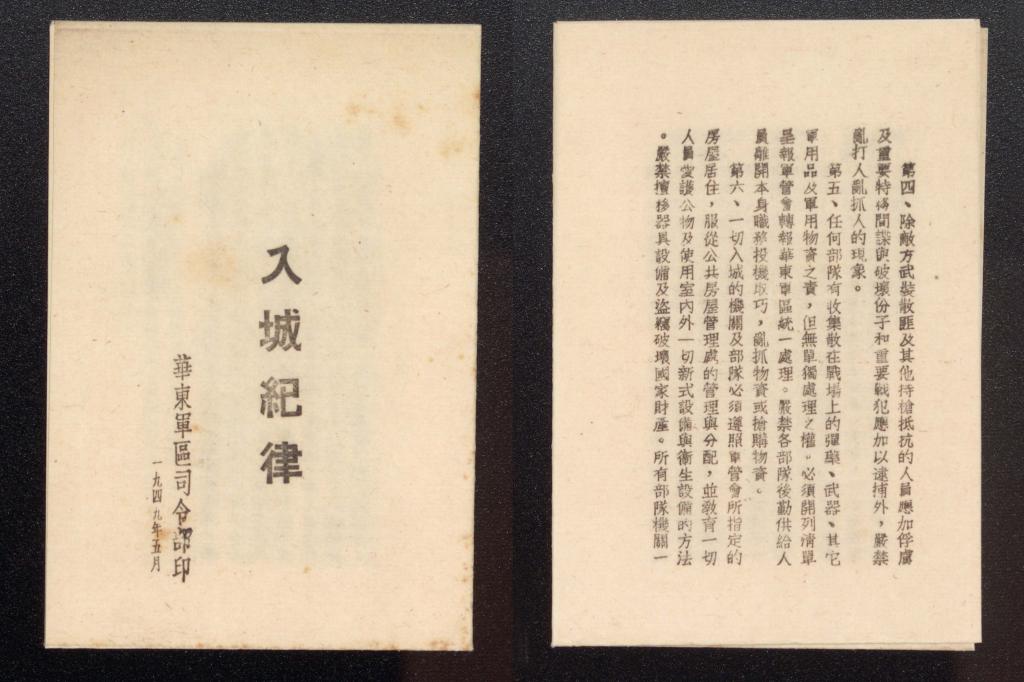 入城紀律
華東軍區司令部印
一九四九年五月
第四、除敵方武裝散匪及其他持槍抵抗的人員應加俘虜
及重要特務間諜與破壞份子和重要戰犯應加以逮捕外，嚴禁
亂打人亂抓人的現象。
第五、任何部隊有收集散在戰場上的彈藥、武器、其它
軍用品及軍用物資之責，但無單獨處理之權。必須開列清單
呈報軍管會轉報華東軍區統一處理。嚴禁各部隊後勤供給人
員離開本身職務投機取巧，亂抓物資或搶購物資。
第六、一切入城的機關及部隊必須遵照軍管會所指定的
房屋居住，服從公共房屋管理處的管理與分配，並敎育一切
人員愛護公物及使用室內外一切新式設備與衞生設備的方法
。嚴禁擅移器具設備及盜竊破壞國家財產。所有部隊機關一